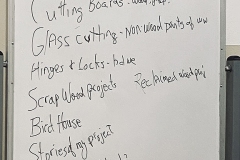 Cutting Boards - wood,
Glass cutting - non wood parts of ww
Hinges & Locks -
Scrap Wood projects Reclaimed wood proj
Bird House
Stories of my project